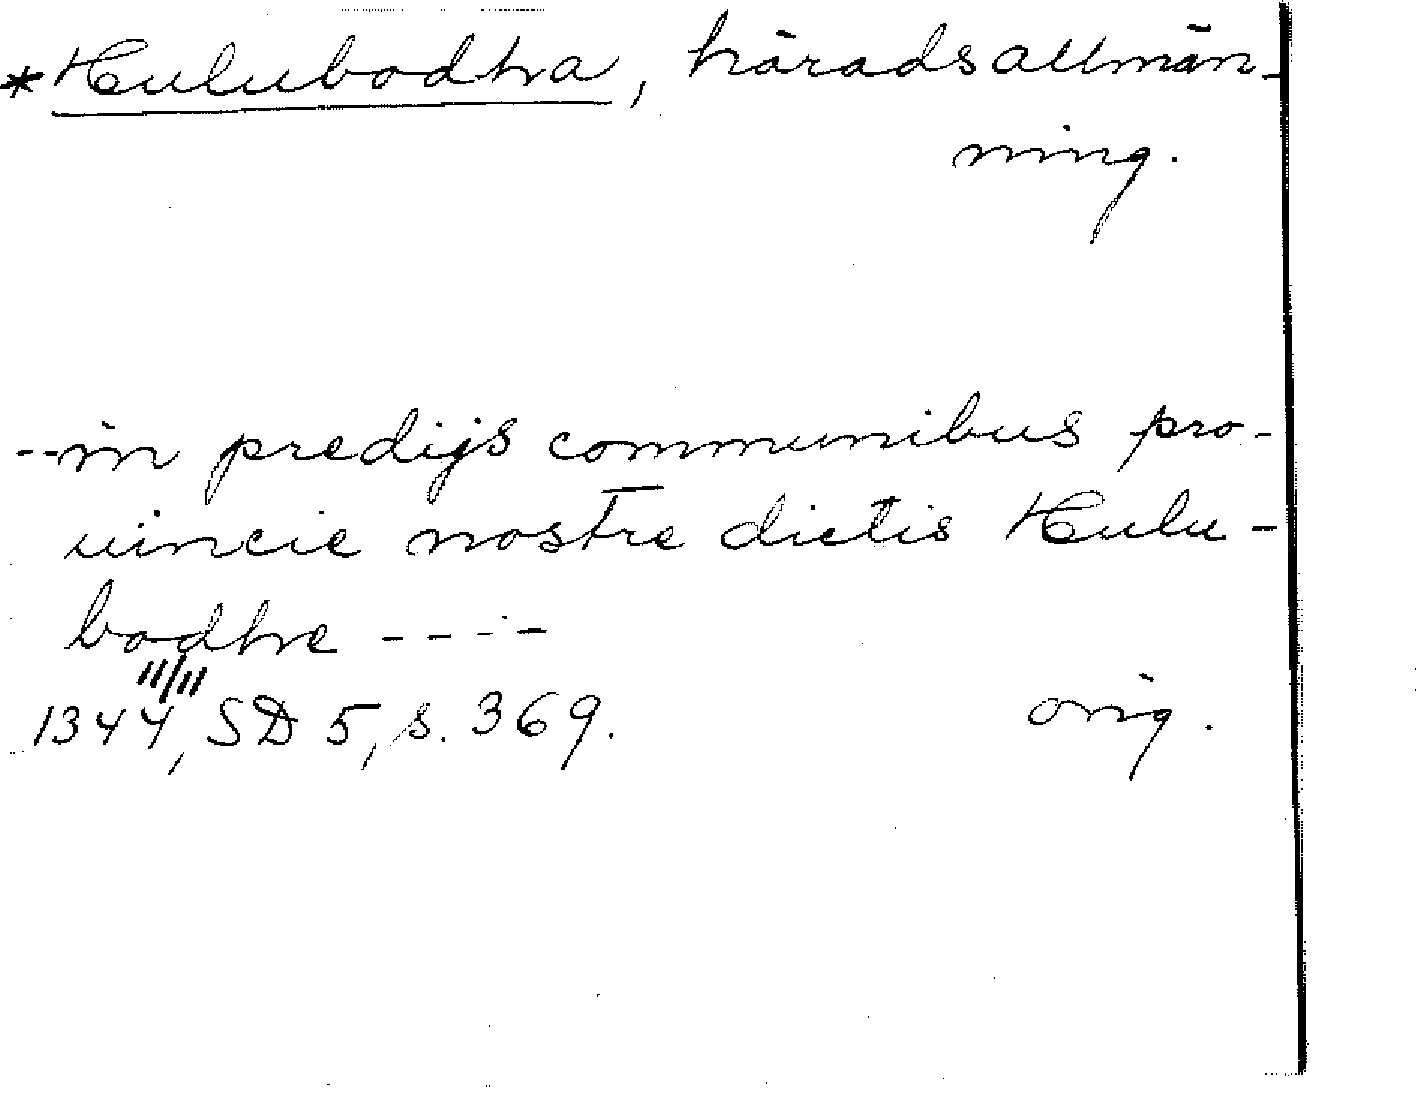 *Hulubodha, häradsallmän-
ning.
--in predijs communibus pro-
uincie nostre dictis Hulu-
bodhe ----
11/11
1344, SD 5, s. 369. orig.